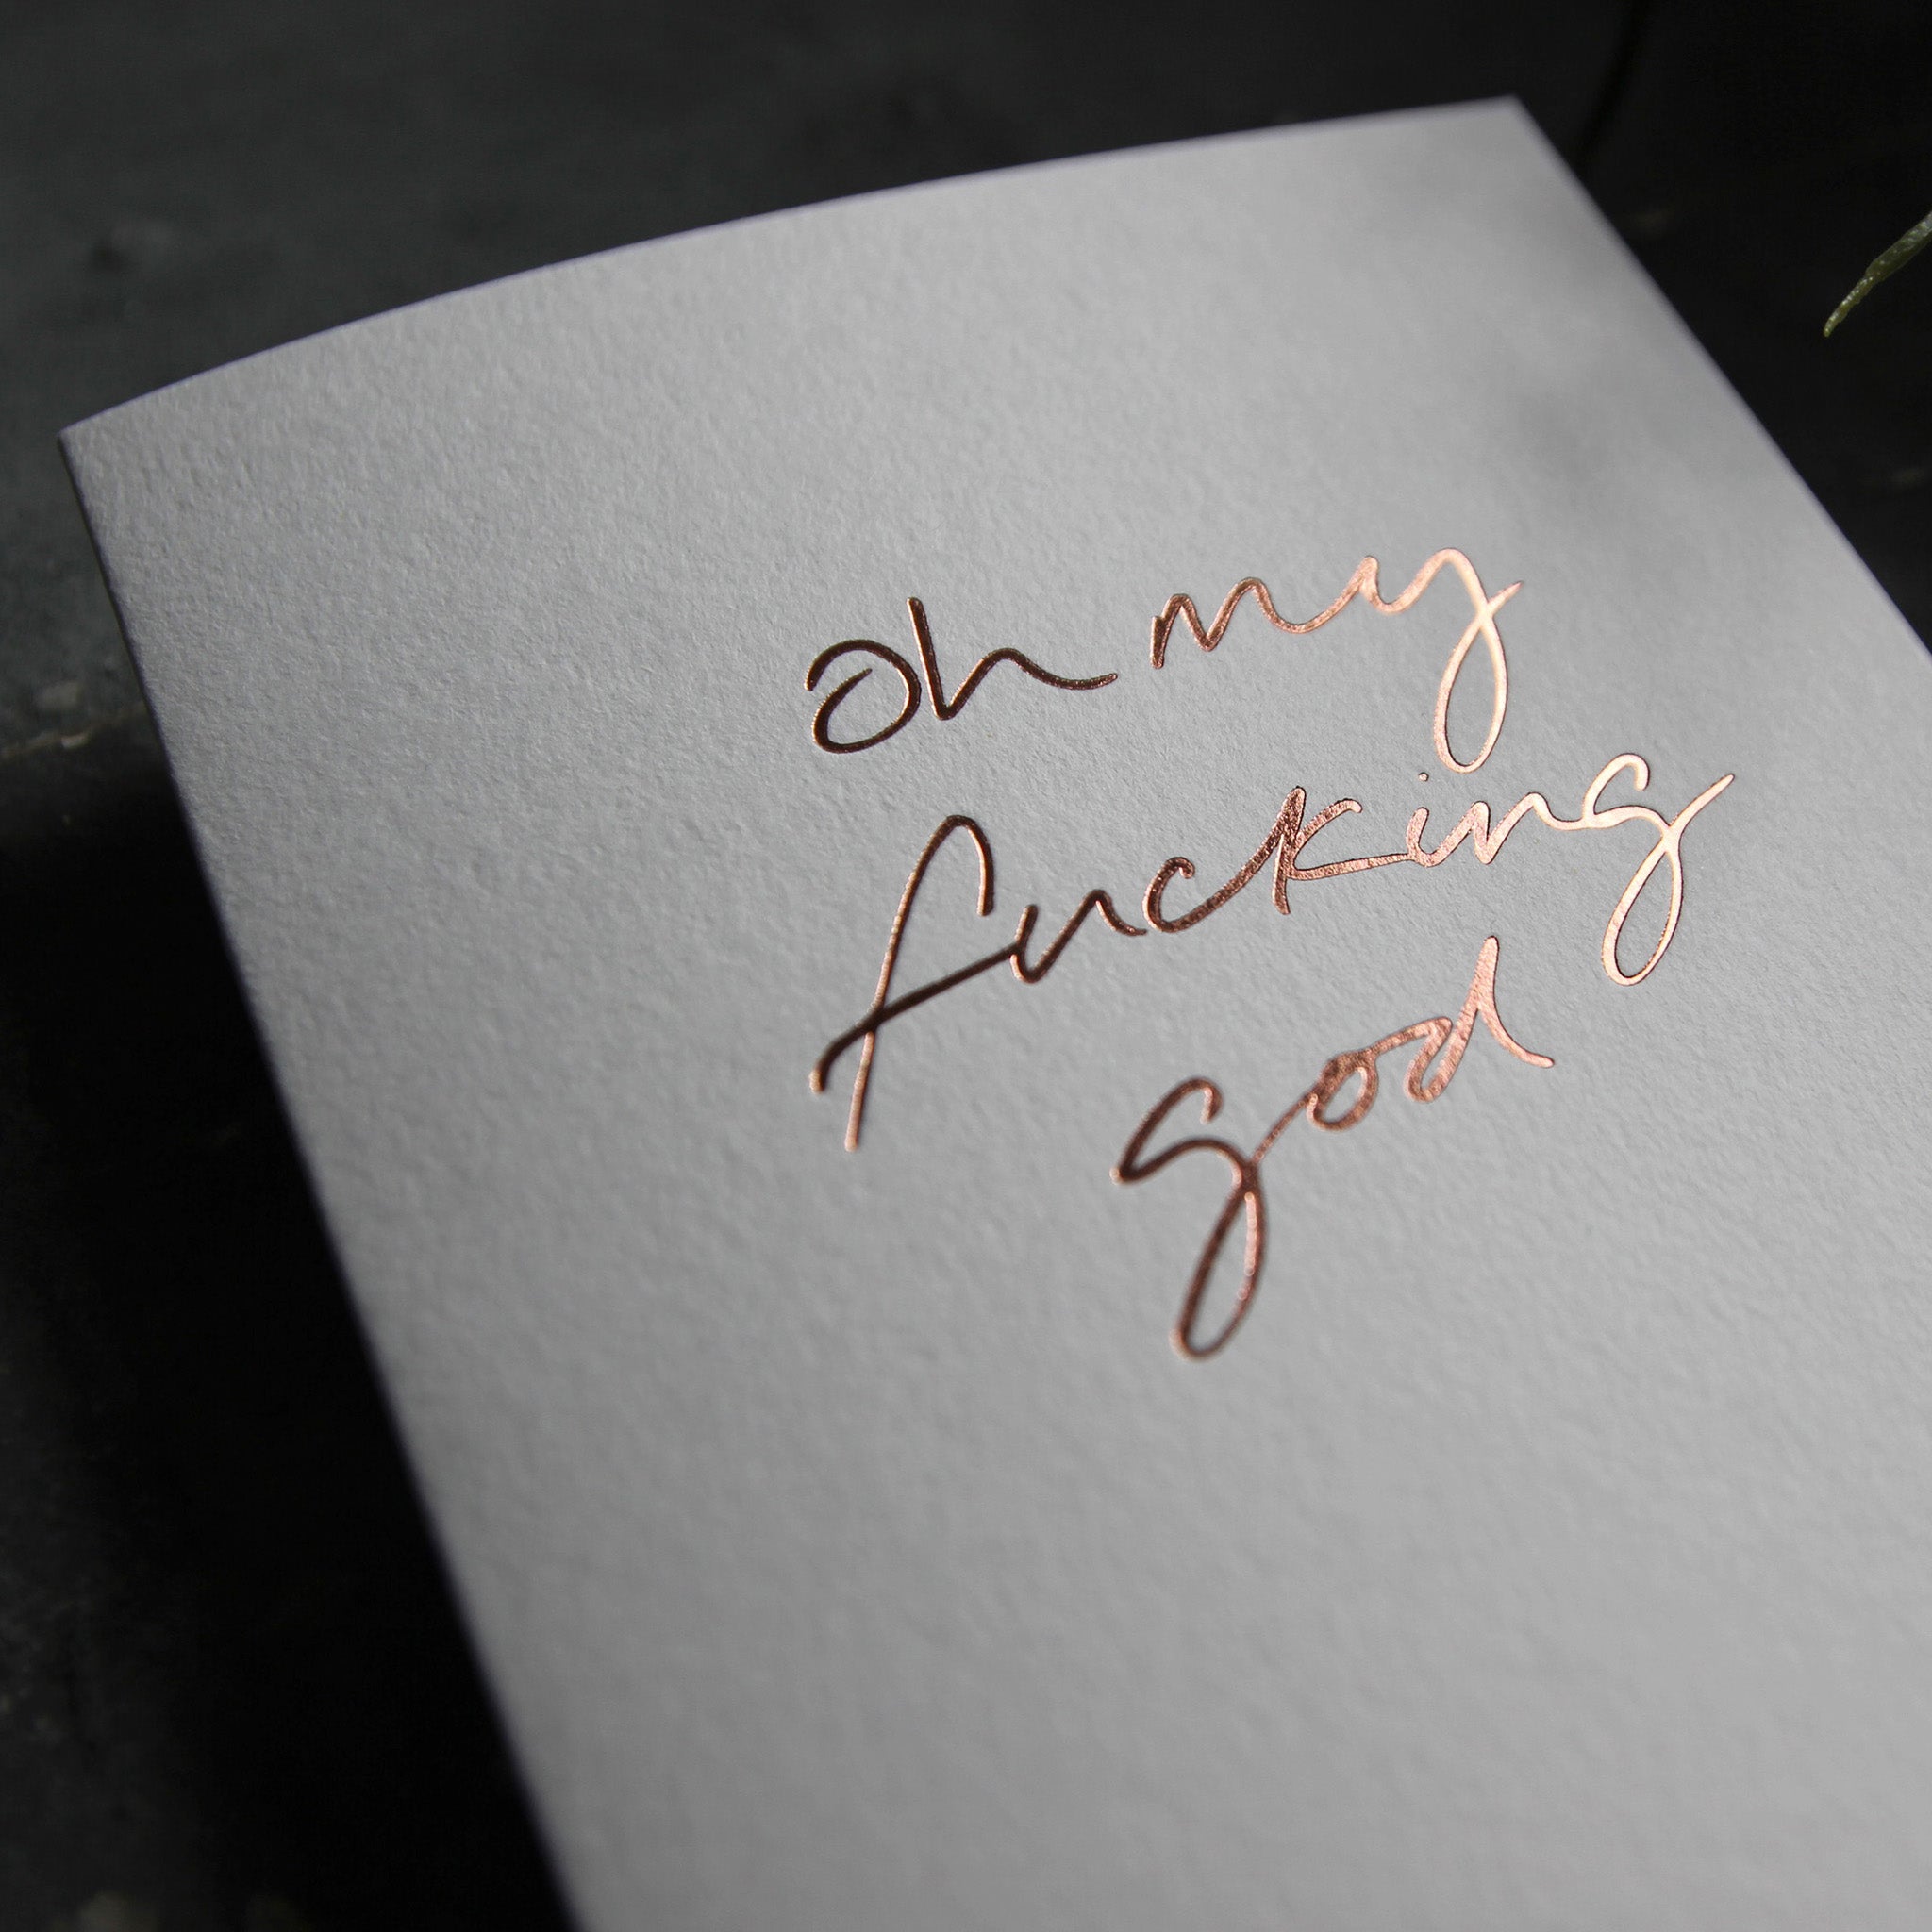 oh my
fucking
god